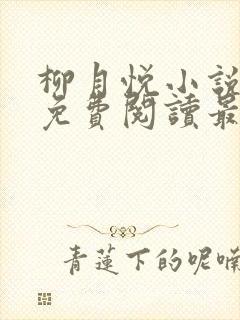 柳月悦小説
免費閱讀最
青蓮下的呢喃